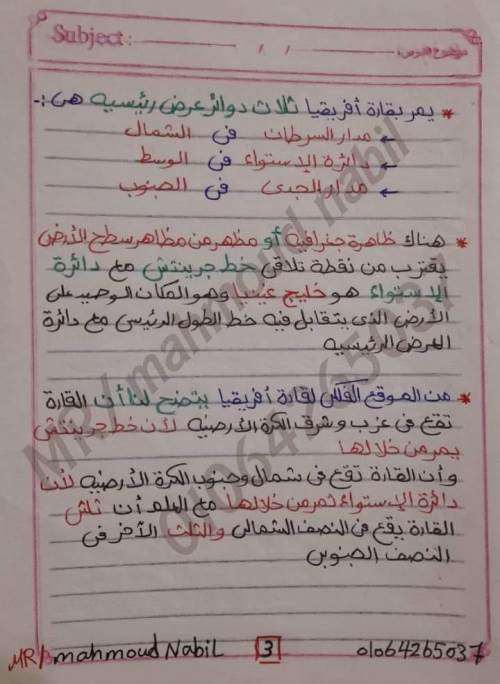 Subject: موضوع الدرس:
/ /
* يمر بقارة أفريقيا ثلاث دوائر عرض رئيسيه هى :-
← مدار السرطان فى الشمال
← دائرة الإستواء فى الوسط
← مدار الجدى فى الجنوب
* هناك ظاهرة جغرافيه أو مظهر من مظاهر سطح الأرض
يقترب من نقطة تلاقى خط جرينتش مع دائرة
الإستواء هو خليج غينيا وهو المكان الوحيد على
الأرض الذى يتقابل فيه خط الطول الرئيسى مع دائرة
العرض الرئيسيه
* من الموقع الفلكى لقارة أفريقيا يتضح لنا أن القارة
تقع فى غرب وشرق الكرة الأرضيه لأن خط جرينتش
يمر من خلالها
وأن القارة تقع فى شمال وجنوب الكرة الأرضيه لأن
دائرة الإستواء تمر من خلالها مع العلم أن ثلثى
القارة يقع فى النصف الشمالى والثلث الأخر فى
النصف الجنوبى
MR/ mahmoud nabil
01064265037
MR/ mahmoud Nabil 3 01064265037